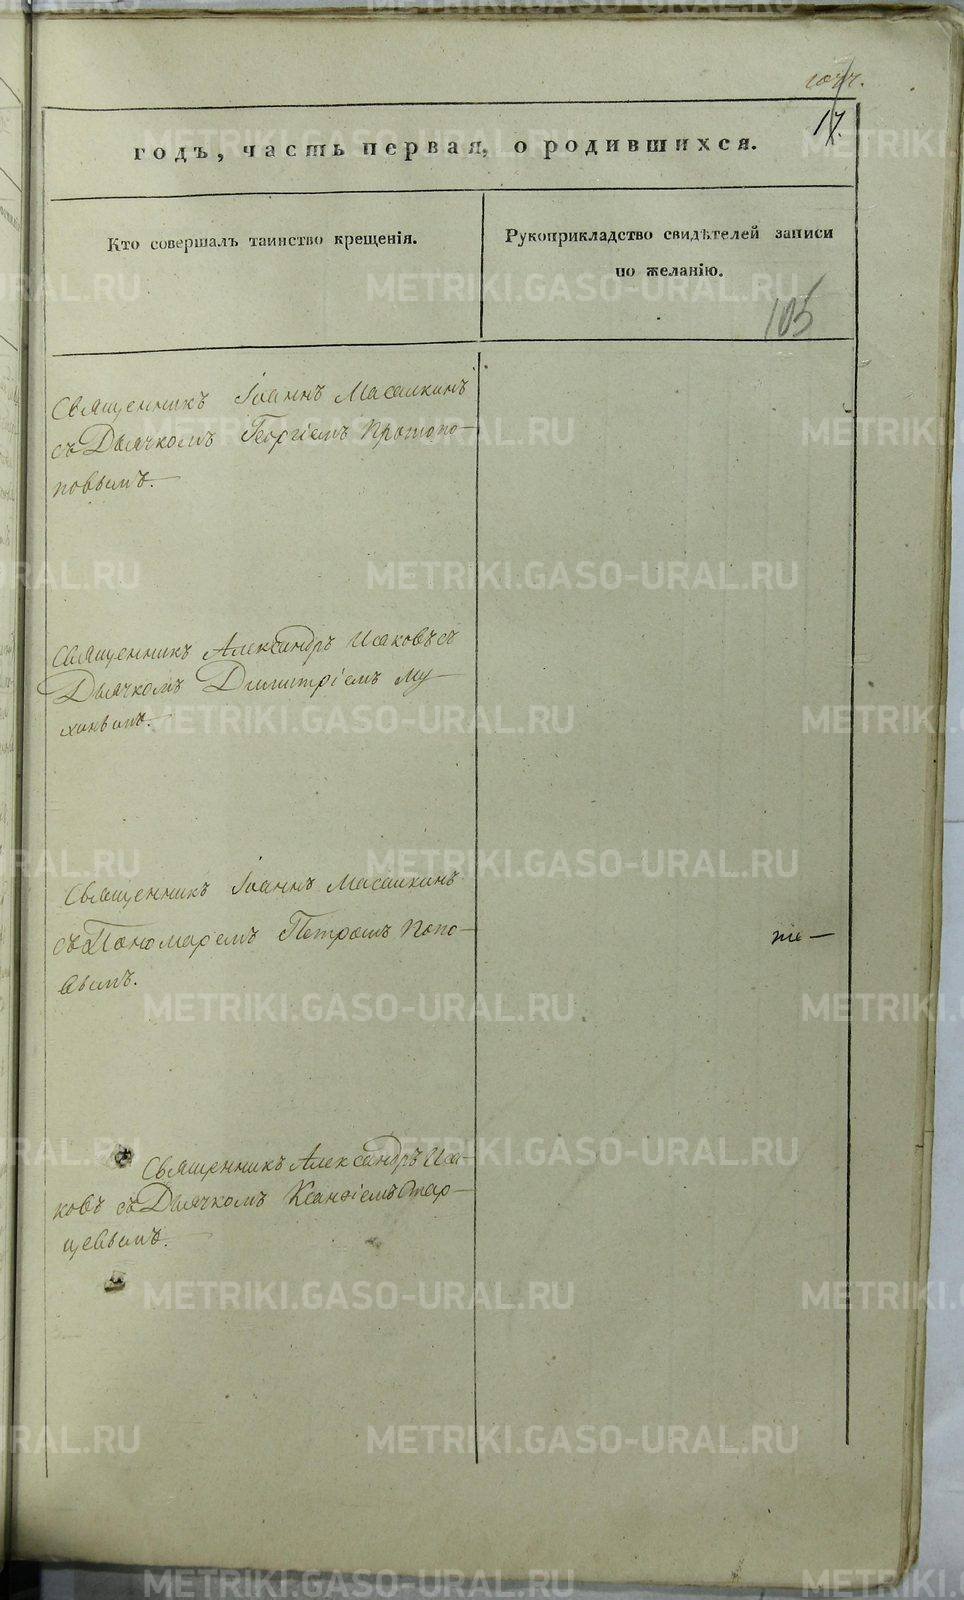 17.
годъ, часть первая, о родившихся.
Кто совершалъ таинство крещенія.
Рукоприкладство свидѣтелей записи
по желанію.
105
Священникъ Іоаннъ Масалкинъ
съ Дьячкомъ Георгіемъ Протопо-
повымъ.
Священникъ Александръ Исаковъ съ
Дьячкомъ Димитріемъ Му-
хинымъ.
Священникъ Іоаннъ Масалкинъ
съ Пономаремъ Петромъ Попо-
вымъ.
Священникъ Александръ Иса-
ковъ съ Дьячкомъ Ксанфіемъ Стар-
цевымъ.
METRIKI.GASO-URAL.RU